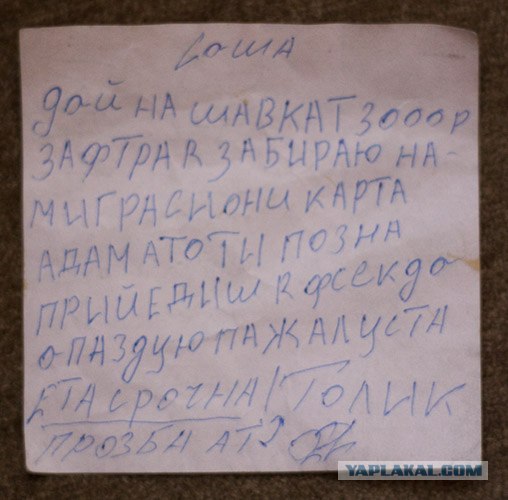 Соша
дай НА ШАВКАТ 3000 Р
ЗАФТРА Я ЗАБИРАЮ НА-
МИГРАСИОНИ КАРТА
АДАМ АТО ТИ ПОЗНА
ПРИЙЕДИШ Я ФСЕКДО
ОПАЗДУЮ ПАЖАЛУСТА
ЕТА СРОЧНА/ТОЛИК
ПРОЗБИ АТ
YAPLAKAL.COM